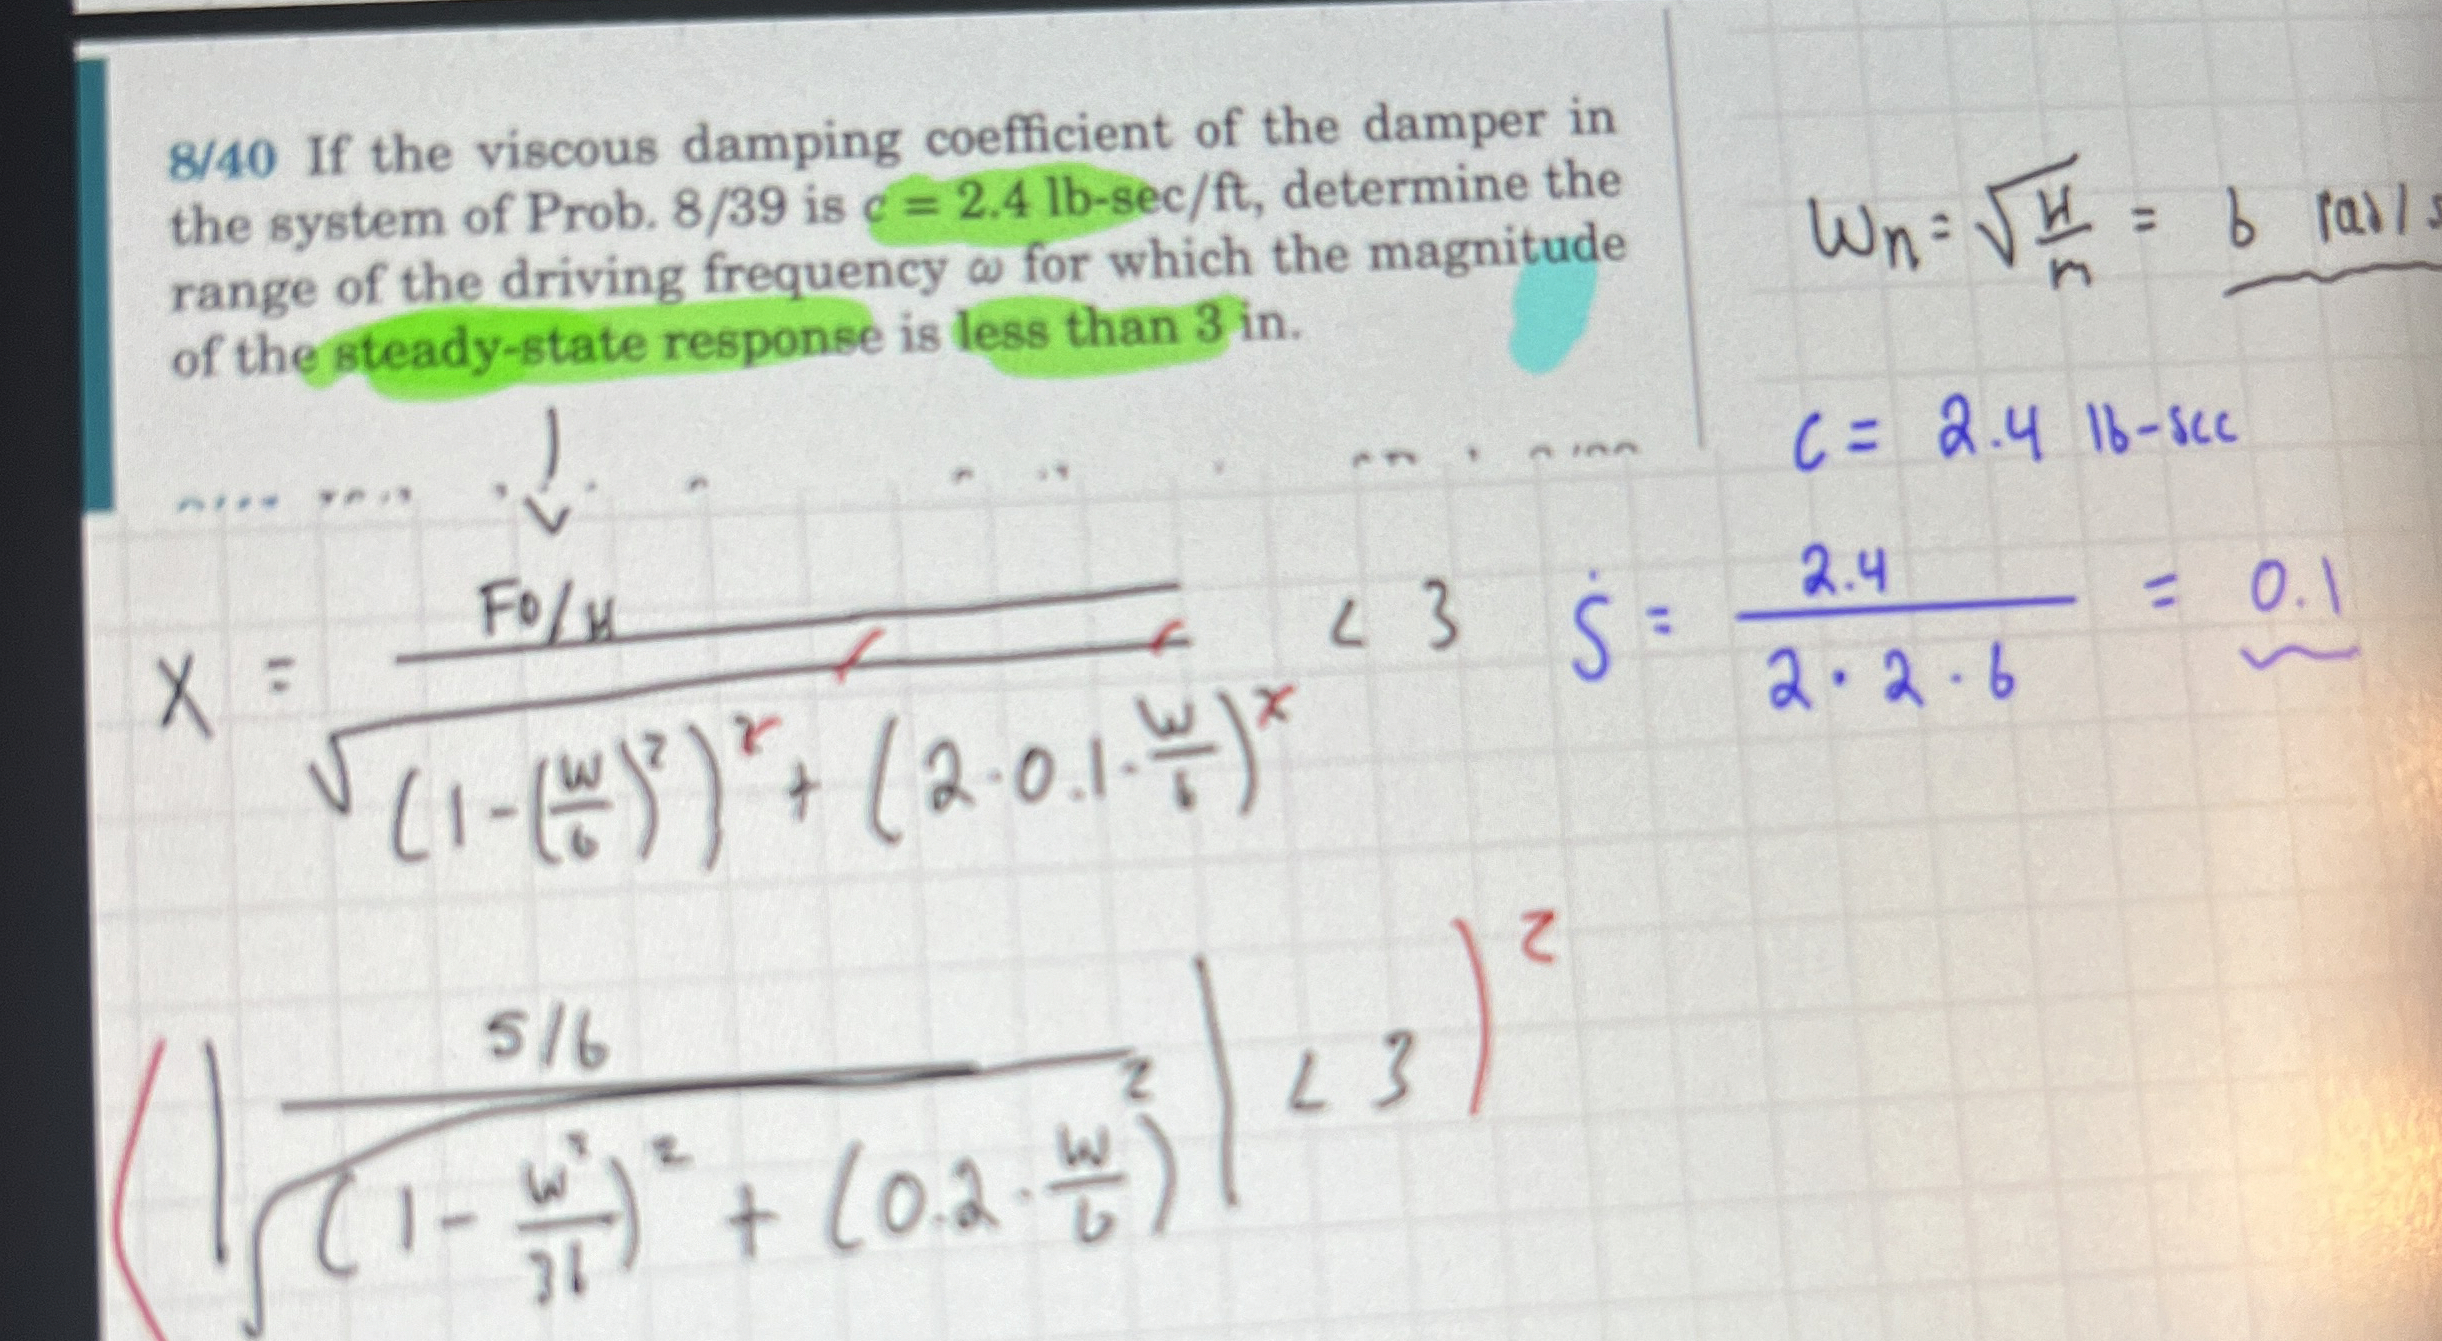 8/40 If the viscous damping coefficient of the damper in
the system of Prob. 8/39 is c = 2.4 lb-sec/ft, determine the
range of the driving frequency ω for which the magnitude
of the steady-state response is less than 3 in.
Wn = √(k/m) = 6 rad/s
C = 2.4 lb-sec
ζ = 2.4 / (2 · 2 · 6) = 0.1
X = (F0/k) / √((1 - (w/6)²)² + (2 · 0.1 · w/6)²) < 3
(|(5/6) / √((1 - w²/36)² + (0.2 · w/6)²)| < 3)²